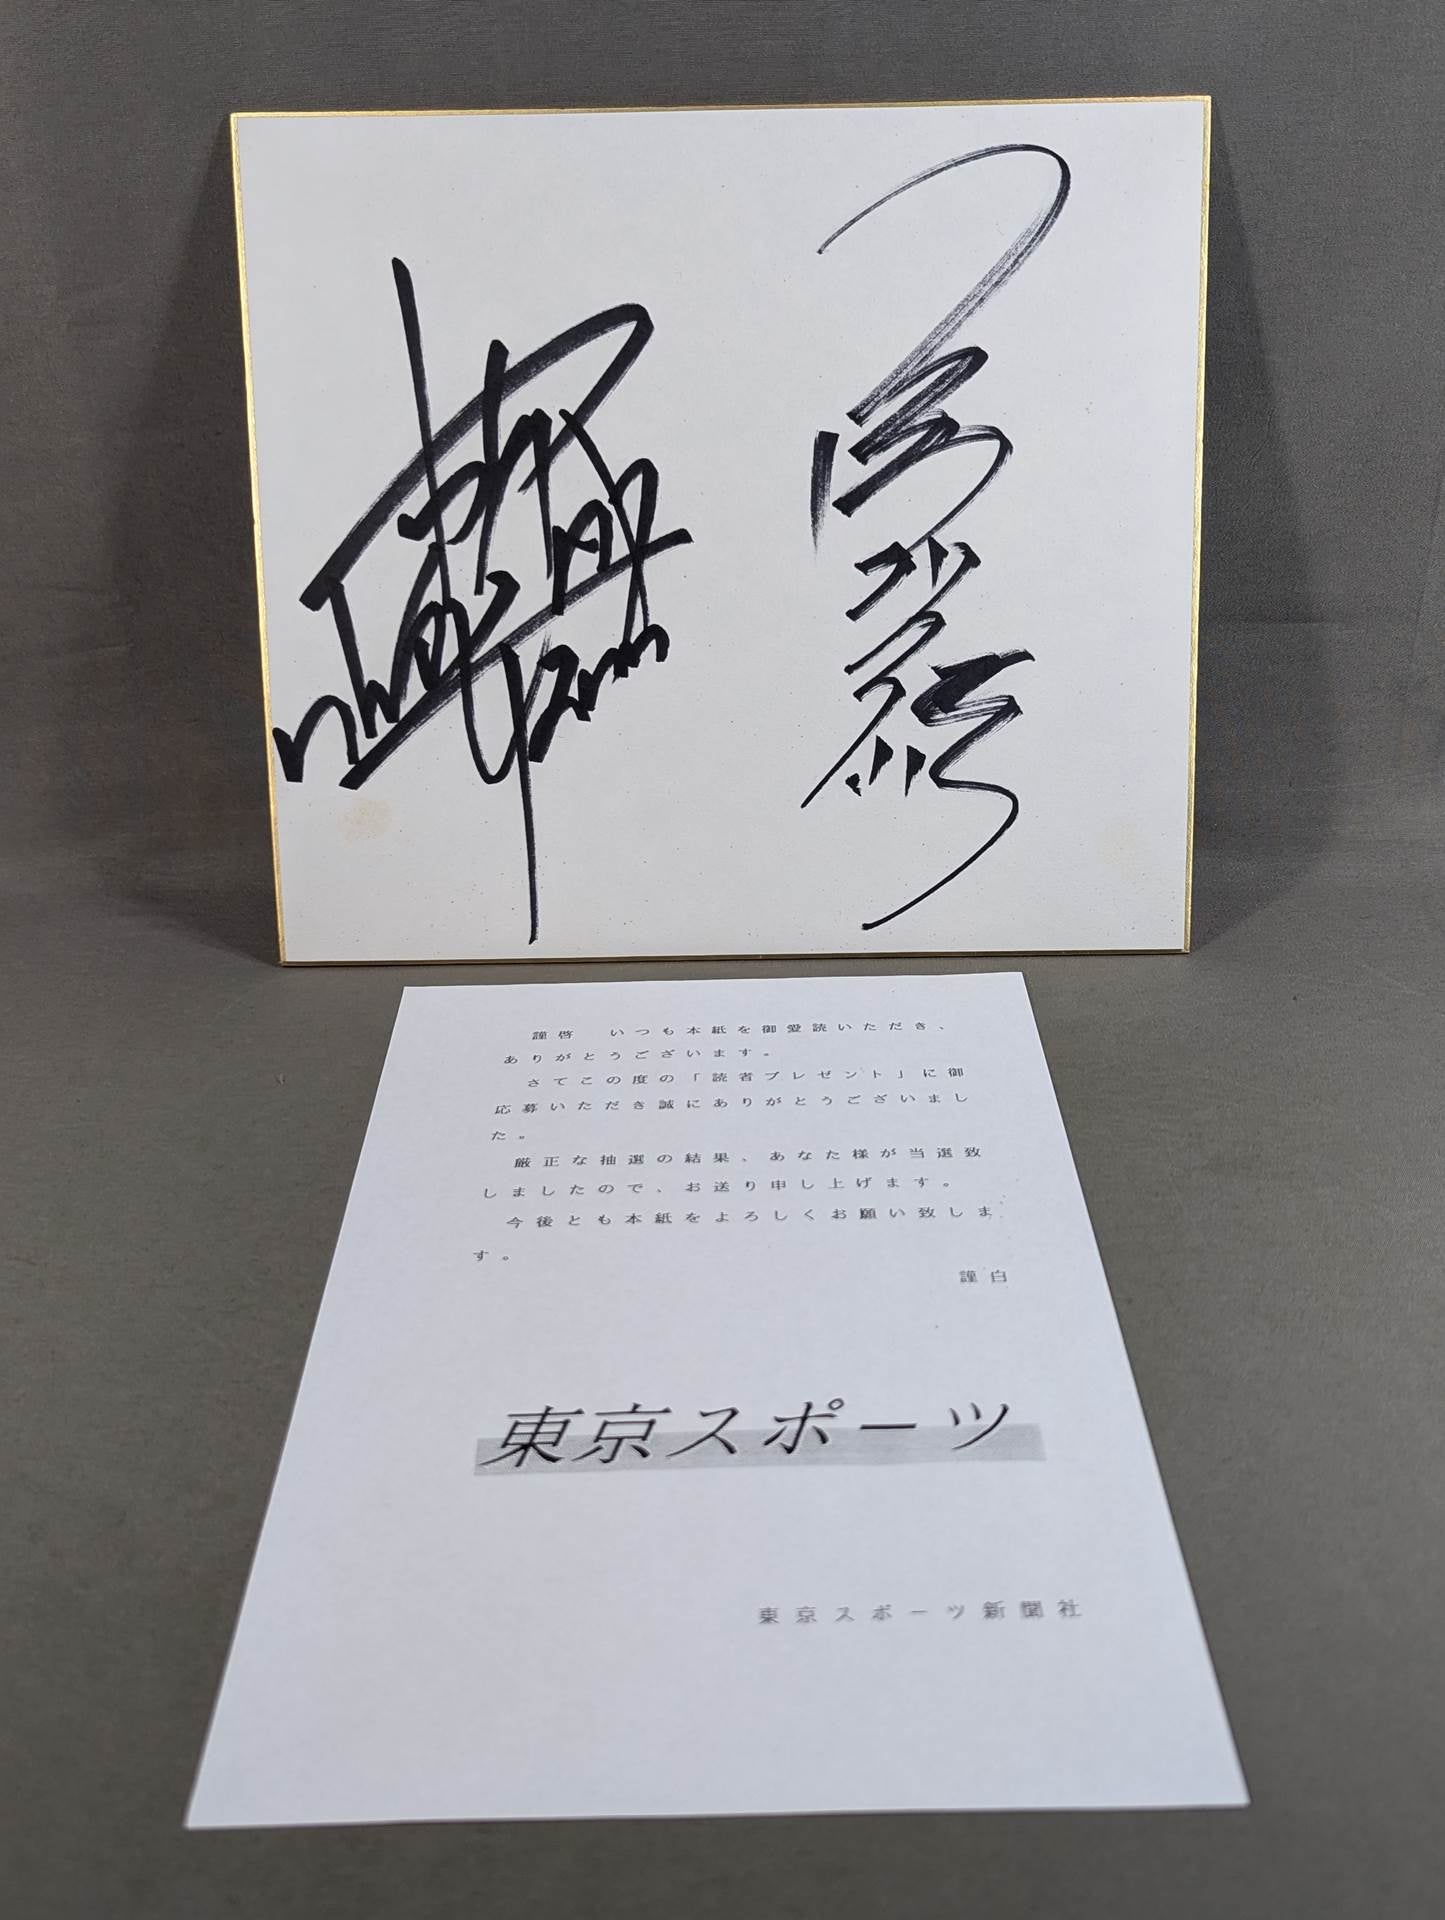 謹啓　いつも本紙を御愛読いただき、
ありがとうございます。
さてこの度の「読者プレゼント」に御
応募いただき誠にありがとうございまし
た。
厳正な抽選の結果、あなた様が当選致
しましたので、お送り申し上げます。
今後とも本紙をよろしくお願い致しま
す。
謹白
東京スポーツ
東京スポーツ新聞社